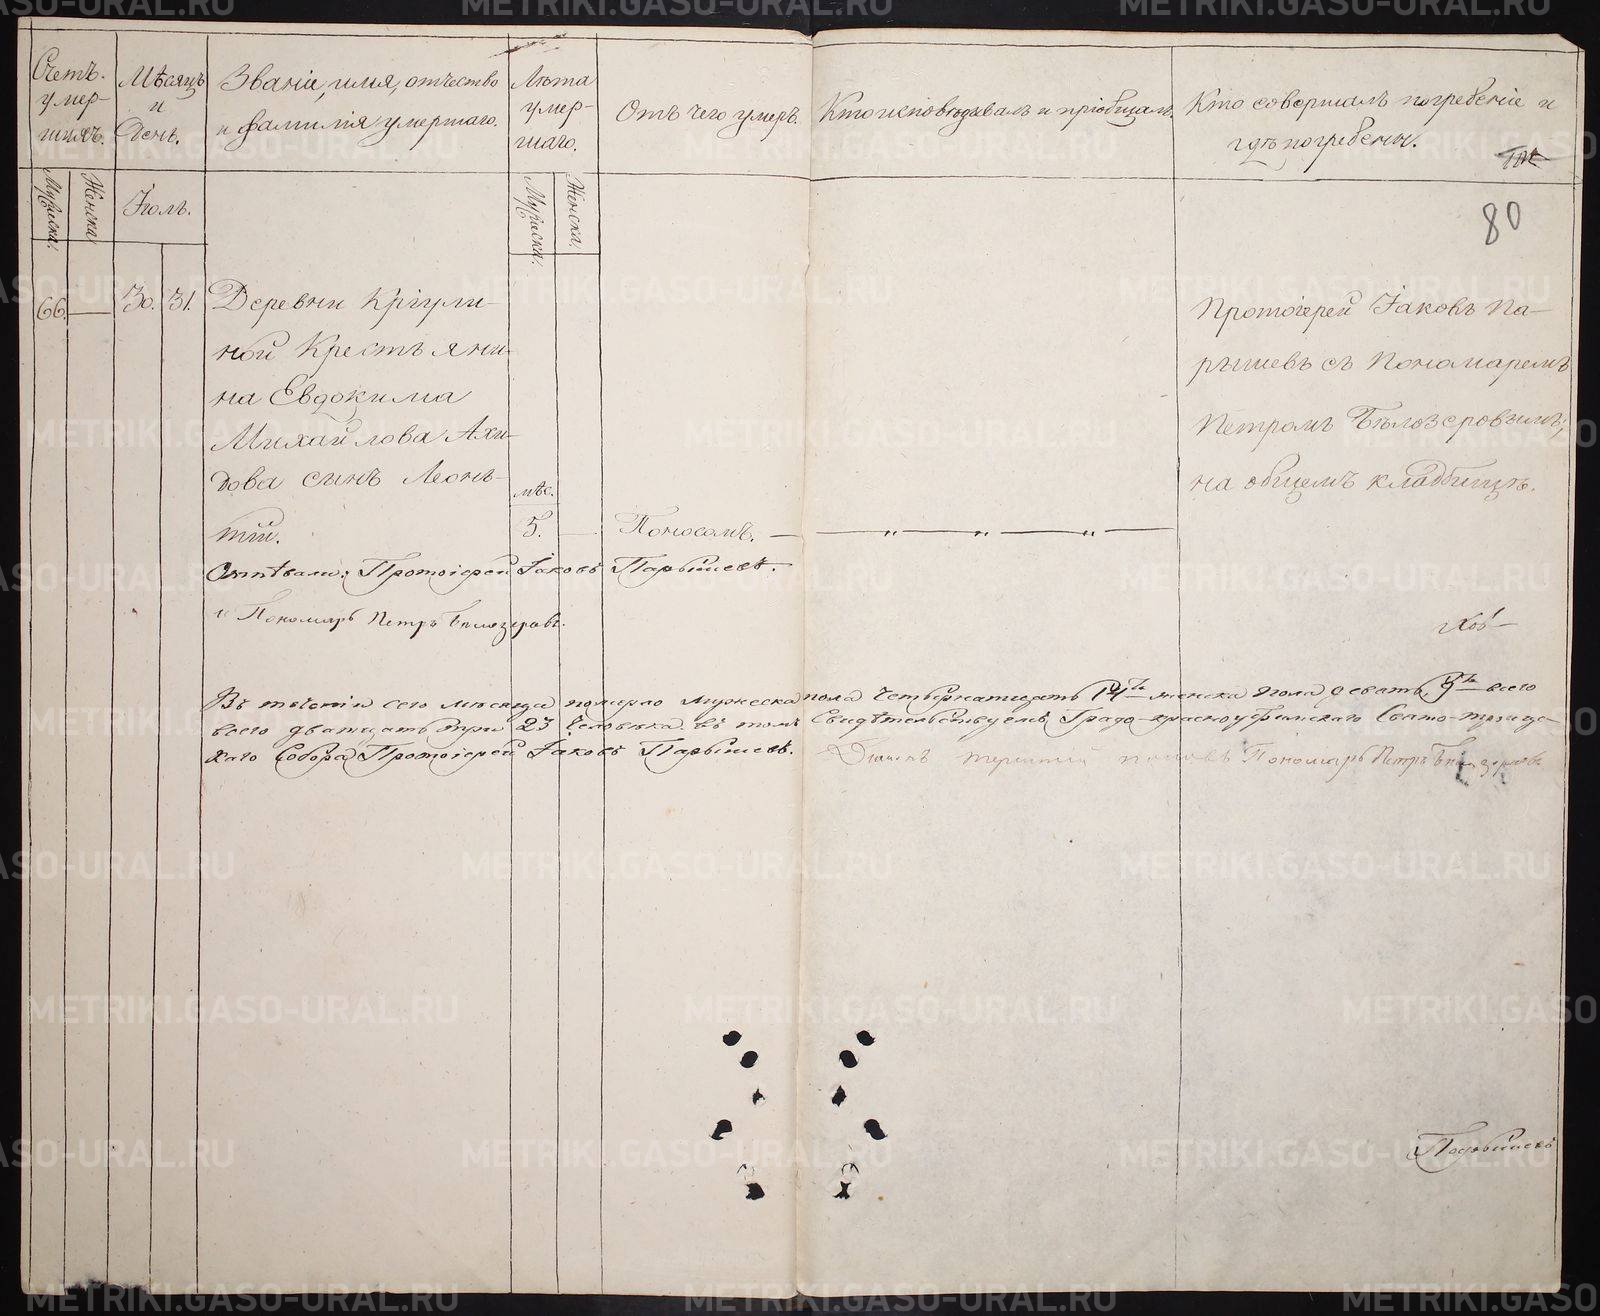 Счетъ умер- шихъ.
Мѣсяцъ и День.
Званіе, имя, отчество и фамилія умершаго.
Лѣта умер- шаго.
Отъ чего умеръ.
Кто исповѣдывалъ и пріобщалъ.
Кто совершалъ погребеніе и гдѣ погребены.
80
Мужеска.
Женска.
Іюль.
Мужеска.
Женска.
66.
30.
31.
Деревни Кріули-
ной Крестьяни-
на Евдокима
Михайлова Ахи-
дова сынъ Леонъ-
тій.
мѣс.
5.
Поносомъ.
Протоіерей Іаковъ Па-
рышевъ съ Пономаремъ
Петромъ Бѣлозеровымъ;
на общемъ кладбищѣ.
Отпѣвали: Протоіерей Іаковъ Парышевъ.
и Пономарь Петръ Белозеровъ.
Въ теченіи сего месяца померло мужеска пола четырнатцать 14ть женска пола девять 9ть всего
всего дватцать три 23 человѣка въ томъ Свидѣтельствуемъ, Градо-красноуфимскаго Свято-троиц-
каго Собора Протоіерей Іаковъ Парышевъ. Пономарь Петръ Белозеровъ
Парышевъ
METRIKI.GASO-URAL.RU